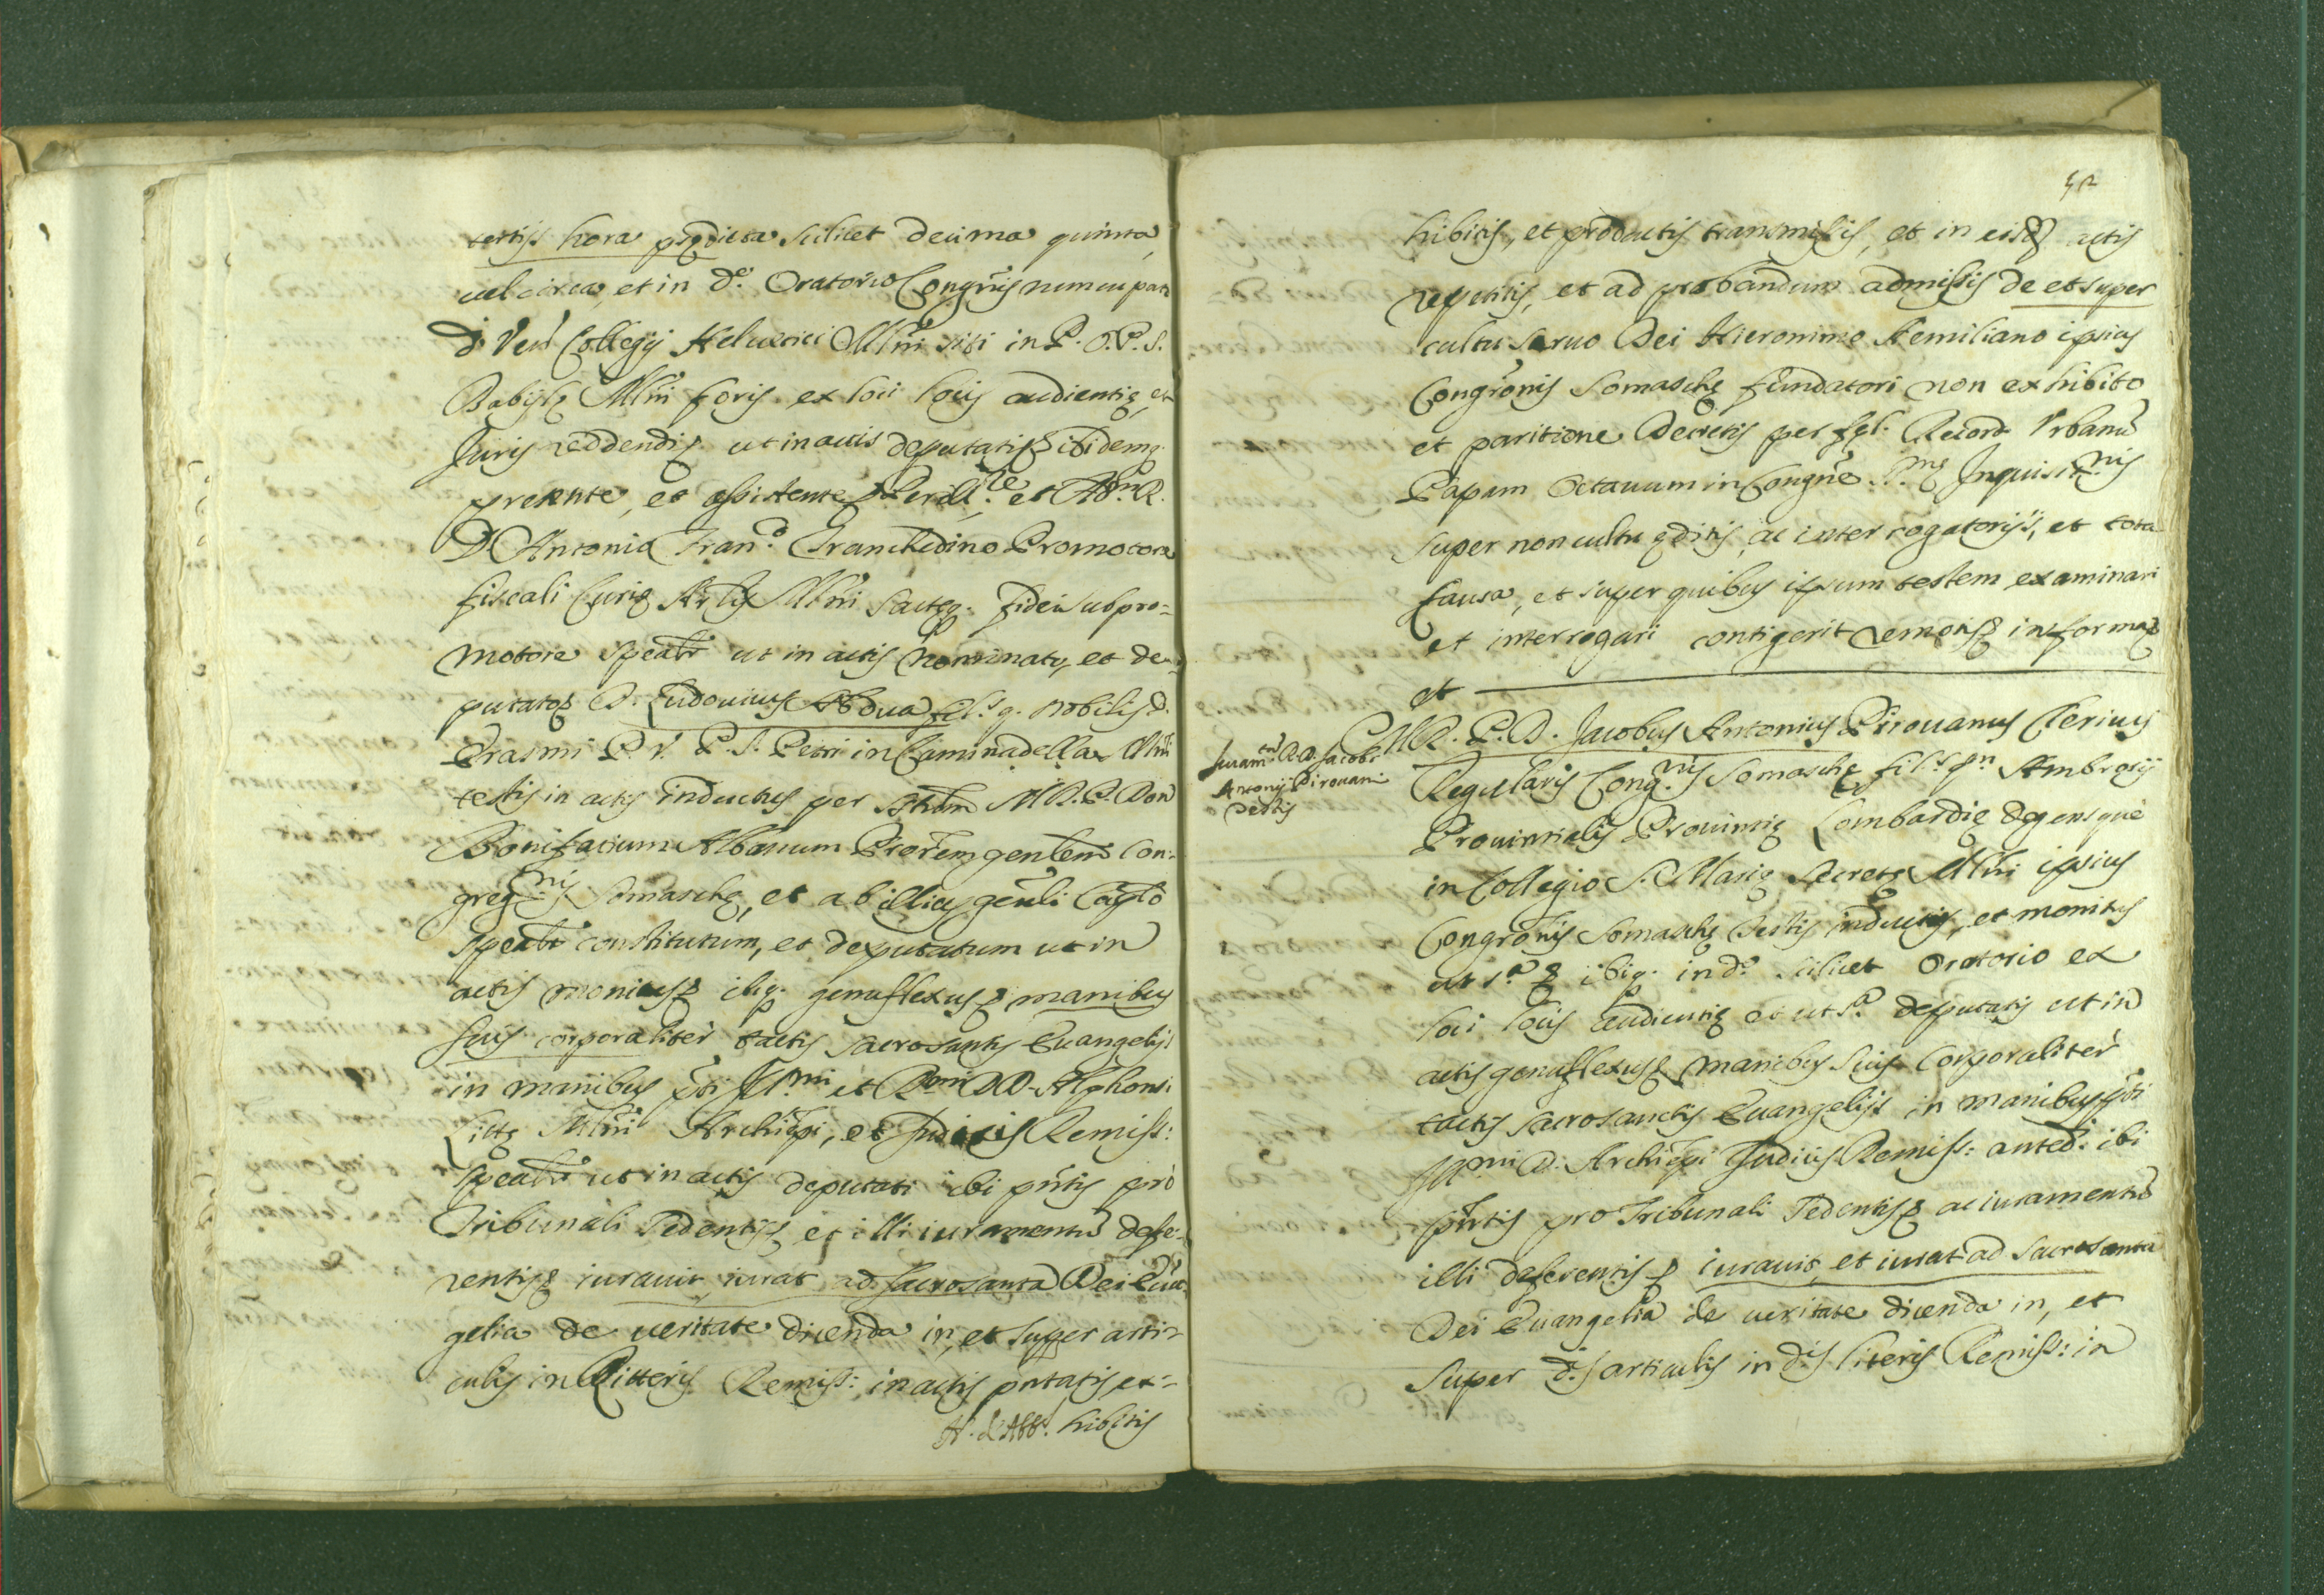 tertijs hora prędicta scilicet decima quinta,
uel circa, et in d.º Oratorio Congrñis nuncupati
d. Ven. Collegij Heluetici Mlñi siti in P. O. P. S.
Babilę Mlñi foris ex loci locis audientię, et
Juris reddendis ut in actis deputatis ibidemq.
presente, et assistente Perill.re et Adm. R.
D. Antonio Fran.º Franchedino Promotore
fiscali Curię Archlis Mlñi sacteq. fidei subpro=
motore spealr ut in actis nominato, et de=
putato D. Ludouicus Abdua fil.s q. nobilis d.
Erasmi P. V. P. S. Petri in Caminadella Mlñi
testis in actis inductus per Adm M. R. P. Don
Bonifatium Albanum Prorem genlem Con=
greg.nis Somaschę, et ab illius genli Caplo
spealr constitutum, et deputatum ut in
actis monitus ibiq. genuflexus manibus
suis corporaliter tactis sacrosanctis Euangelijs
in manibus pti Ill.mi et R.mi D D. Alphonsi
Littę Mlñi Archiepi, et Judicis Remiss:
spealr ut in actis deputati ibi pñtis pro
Tribunali sedentis, et illi iuramentũ defe=
rentis iurauit, iurat ad sacrosanta Dei Euã
gelia de ueritate dicenda in, et super arti=
culis in Litteris Remiss: in actis pñtatis ex=
hibitis
52
hibitis, et productis transmissis, et in eisd. actis
repetitis, et ad probandum admissis de et super
cultu seruo Dei Hieronimo Aemiliano ipsius
Congrõnis Somaschę fundatori non exhibito
et paritione Decretis per fęl. Record. Vrbanũ
Papam Octauum in Congñe S.mę Inquisit.nis
super non cultu ęditis, ac interrogatorijs, et tota
Causa, et super quibus ipsum testem examinari
et interrogari contigerit remotis informaz
et
Juram.tũ R.D. Jacobi
Antonij Pirouani
Testis
M. R. P. D. Jacobus Antonius Pirouanus Clericus
Regularis Cong.nis Somaschę fil.s qn Ambrosij
Prouintialis Prouintię Lombardię degensque
in Collegio S. Marię Secretę Mlñi ipsius
Congrõnis Somaschę testis inductus, et monitus
ut s.ª ibiq. in d.º scilicet Oratorio ex
loci locis audientię et ut s.ª deputatis ut in
actis genuflexus manibus suis corporaliter
tactis sacrosanctis Euangelijs in manibus pti
Ill.mi D. Archiepi Judicis Remiss: anted. ibi
pñtis pro Tribunali sedentis ac iuramentũ
illi deferentis iurauit, et iurat ad sacrosanta
Dei Euangelia de ueritate dicenda in, et
super d.s articulis in d.is literis Remiss: in